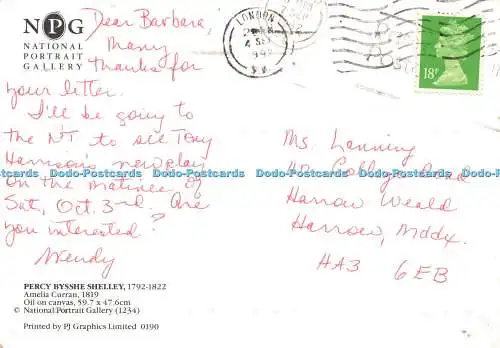 NPG
NATIONAL
PORTRAIT
GALLERY
Dear Barbara,
Many
thanks for
your letter.
I'll be going to
the NT to see Tony
Harrison's new play
on the matinee of
Sat, Oct. 3rd. Are
you interested?
Wendy
PERCY BYSSHE SHELLEY, 1792-1822
Amelia Curran, 1819
Oil on canvas, 59.7 x 47.6cm
© National Portrait Gallery (1234)
Printed by PJ Graphics Limited 0190
LONDON
4 SEP
S W
18P
Ms. Lanning
Road
Harrow Weald
Harrow, Mddx.
HA3 6EB
Dodo-Postcards Dodo-Postcards Dodo-Postcards Dodo-Postcards Dodo-Postcards